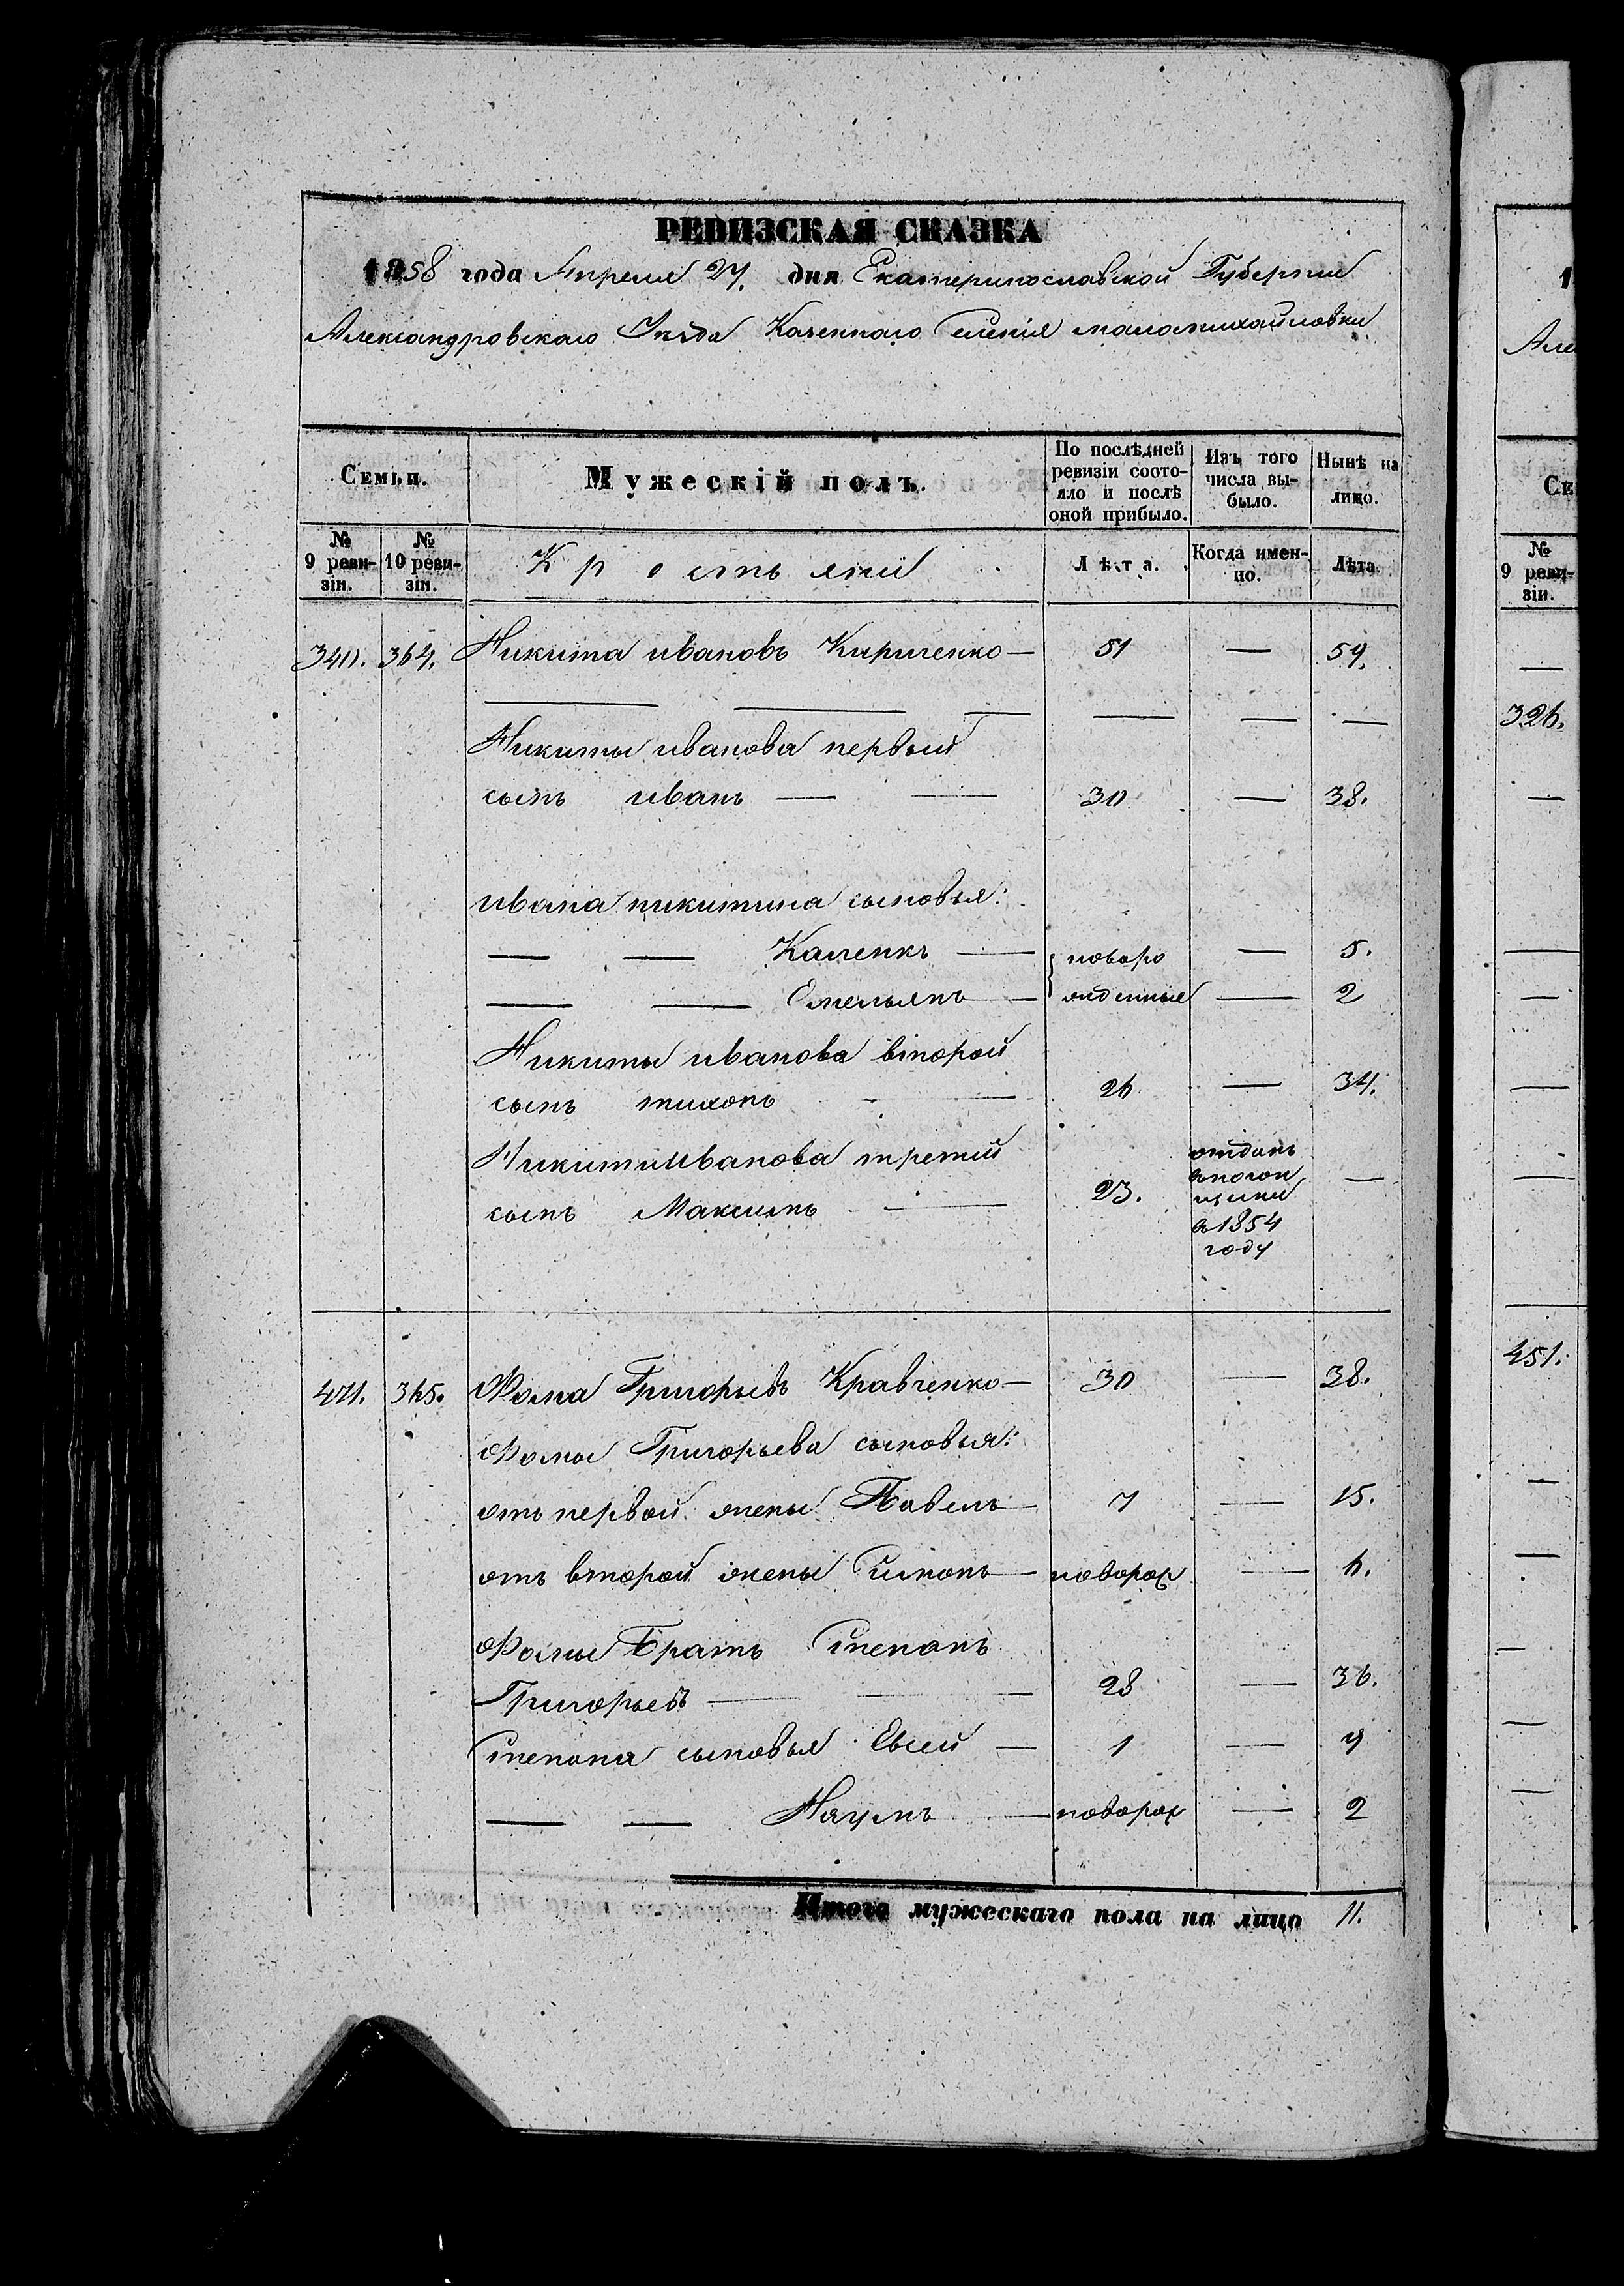 РЕВИЗСКАЯ СКАЗКА
1858 года Апреля 27. дня Екатеринославской Губернии
Александровскаго Уѣзда Казеннаго селенія маломихайловки
Семьи.
Мужескій полъ.
По послѣдней ревизіи состояло и послѣ оной прибыло.
Изъ того числа выбыло.
Нынѣ на лицо.
№ 9 ревизіи.
№ 10 ревизіи.
Крестьяни
Лѣта.
Когда именно.
Лѣта.
340. 364. Никита ивановъ Кириченко — 51 — 59.
— — — — — —
Никиты иванова первый
сынъ иванъ — — 30 — 38.
ивана никитина сыновья:
— — Каленкъ — новоро — 5.
— — Омельянъ — жденные — 2
Никиты иванова второй
сынъ тихонъ — — 26 — 34.
Никиты иванова третий
сынъ Максимъ — 23. отданъ
в 1854
году —
471. 365. Фома Григорьевъ Кравченко — 30 — 38.
Фомы Григорьева сыновья:
отъ первой жены Павелъ — 7 — 15.
отъ второй жены — новорож — 6.
Фомы Братъ Степанъ
Григорьевъ — — — 28 — 36.
Степана сыновья Евсей — 1 — 9
— — Наумъ — новорож — 2
Итого мужескаго пола на лицо 11.
1
Але
Се
№
9 реви-
зіи.
—
326.
—
—
—
—
—
451.
—
—
—
—
—